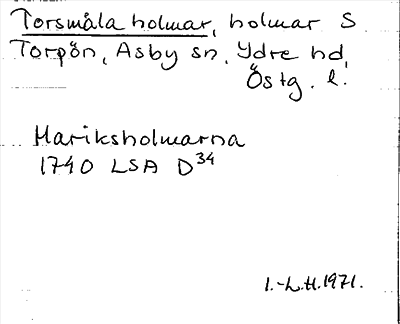 Torsmåla holmar, holmar S
Torpön, Asby sn, Ydre hd,
Östg. l.
Hariksholmarna
1740 LSA D34
I.-L.H.1971.